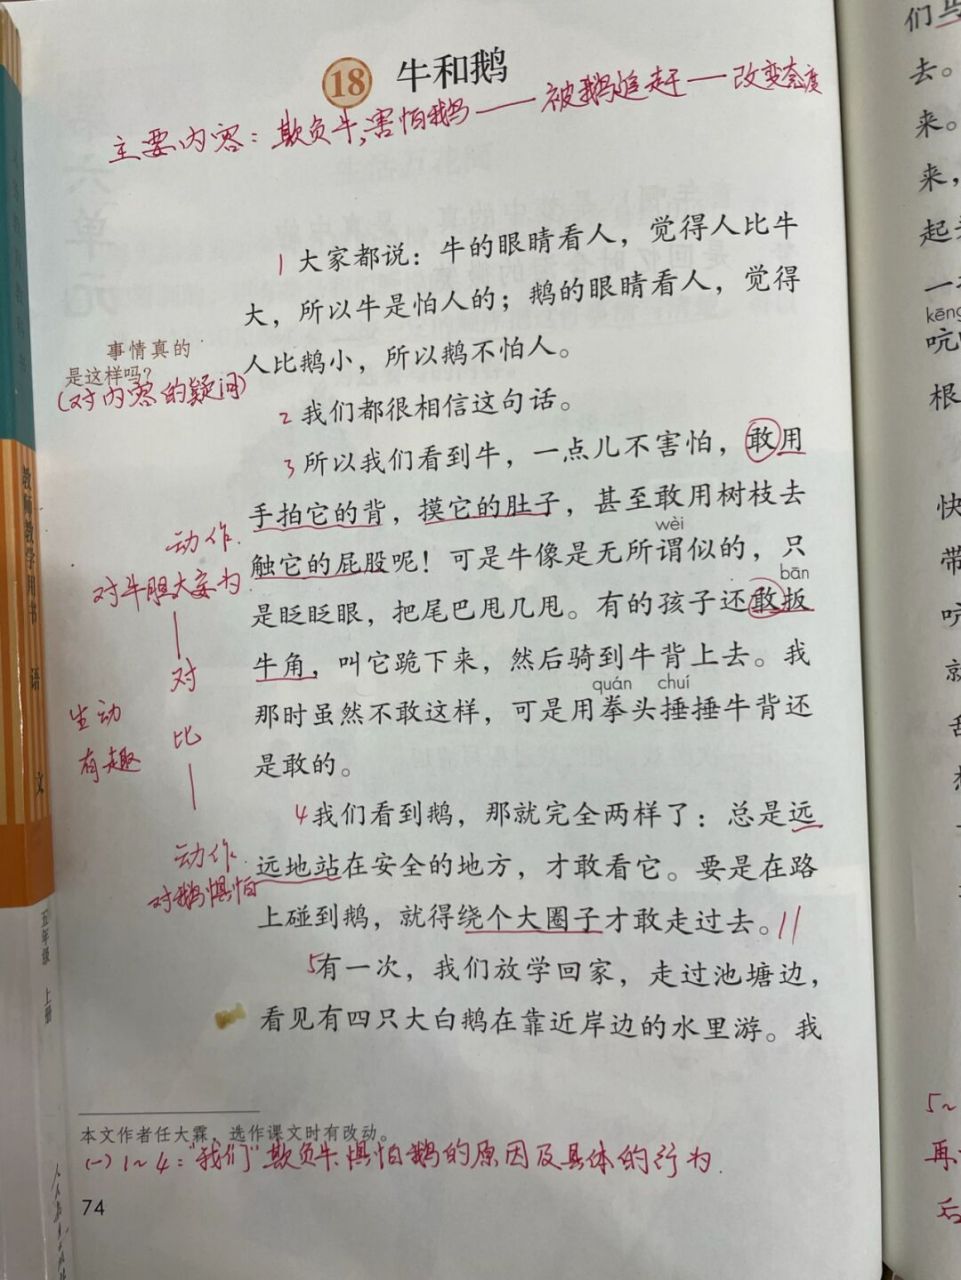 18 牛和鹅
主要内容：欺负牛,害怕鹅——被鹅追赶—改变态度
1大家都说：牛的眼睛看人，觉得人比牛
大，所以牛是怕人的；鹅的眼睛看人，觉得
人比鹅小，所以鹅不怕人。
事情真的
是这样吗？
(对内容的疑问)
2我们都很相信这句话。
3所以我们看到牛，一点儿不害怕，敢用
手拍它的背，摸它的肚子，甚至敢用树枝去
wèi
触它的屁股呢！可是牛像是无所谓似的，只
bān
是眨眨眼，把尾巴甩几甩。有的孩子还敢扳
牛角，叫它跪下来，然后骑到牛背上去。我
quán chuí
那时虽然不敢这样，可是用拳头捶捶牛背还
是敢的。
4我们看到鹅，那就完全两样了：总是远
远地站在安全的地方，才敢看它。要是在路
上碰到鹅，就得绕个大圈子才敢走过去。//
5有一次，我们放学回家，走过池塘边，
看见有四只大白鹅在靠近岸边的水里游。我
动作
对牛胆大妄为
对
比
生动
有趣
动作
对鹅惧怕
本文作者任大霖，选作课文时有改动。
(一)1~4："我们"欺负牛、惧怕鹅的原因及具体的行为.
74
教师教学用书 语 文
五年级 上册
们
去。
来。
来，
起
一
kēng
吭
根
快
带
吭
就
5~
再
后